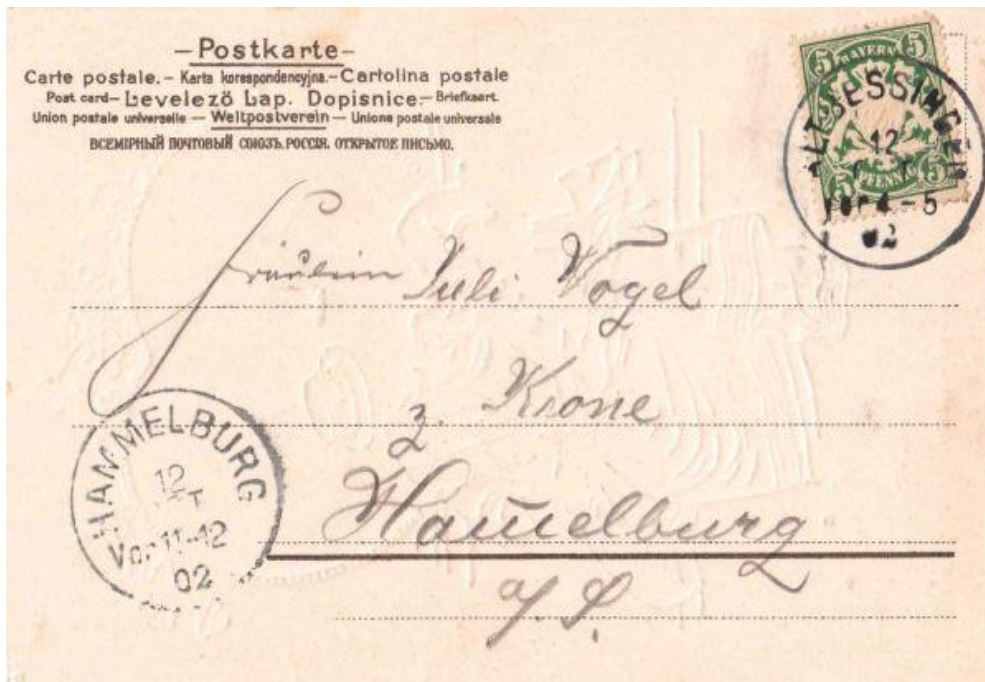 Postkarte
Carte postale. – Karta korespondencyjna. – Cartolina postale
Post card – Levelező Lap. Dopisnice. – Briefkaart.
Union postale universelle – Weltpostverein – Unione postale universale
ВСЕМІРНЫЙ ПОЧТОВЫЙ СОЮЗЪ. РОССІЯ. ОТКРЫТОЕ ПИСЬМО.
5 BAYERN 5
5 PFENNIG 5
ALTBESSINGEN
12
Vor 4-5
02
Fräulein Juli Vogel
z. Krone
Ham̄elburg
a/S.
HAMMELBURG
12
Vor 11-12
02